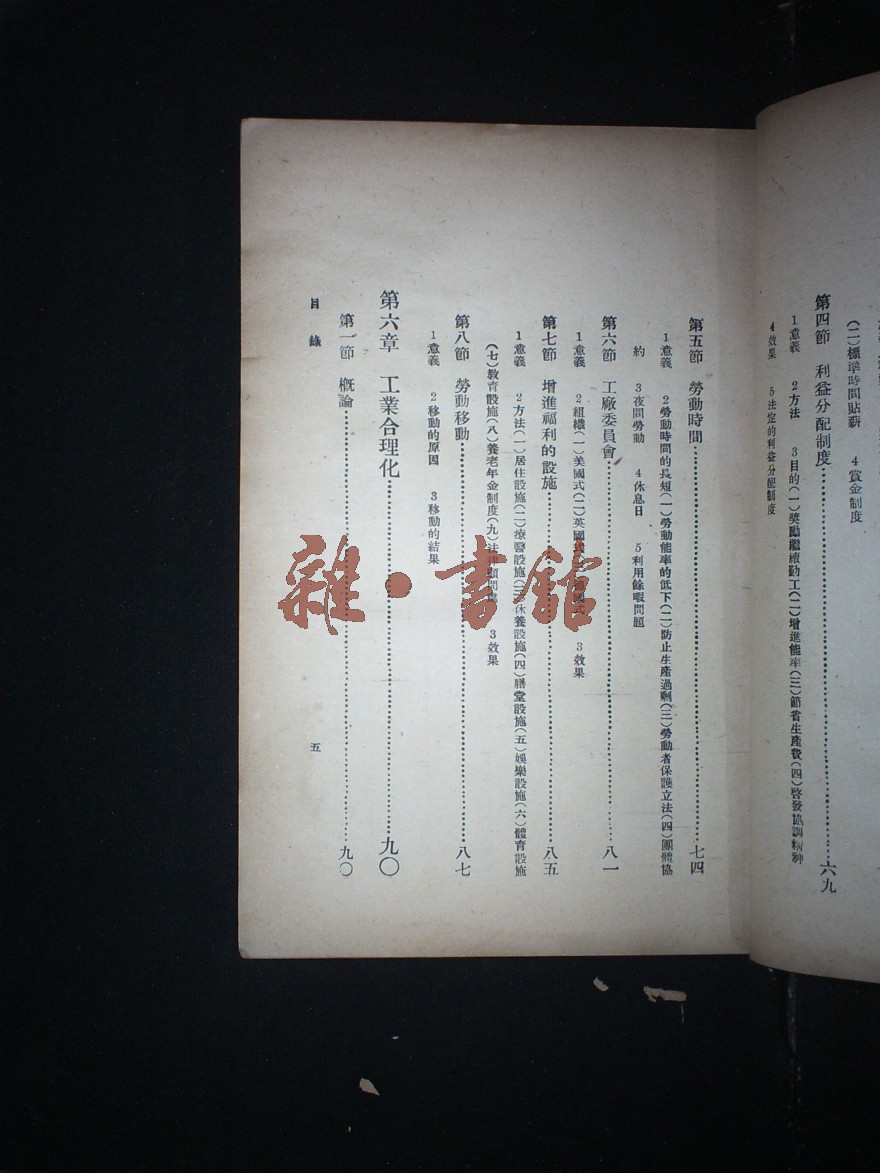 (二)標準時間貼薪 4賞金制度
第四節 利益分配制度……六九
1意義 2方法 3目的(一)奬勵繼續勤工(二)增進能率(三)節省生產費(四)啓發協調精神
4效果 5法定的利益分配制度
第五節 勞動時間……七四
1意義 2勞動時間的長短(一)勞動能率的低下(二)防止生產過剩(三)勞動者保護立法(四)團體協
約 3夜間勞動 4休息日 5利用餘暇問題
第六節 工廠委員會……八一
1意義 2組織(一)美國式(二)英國式 國式 3效果
第七節 增進福利的設施……八五
1意義 2方法(一)居住設施(二)療醫設施(三)休養設施(四)膳堂設施(五)娛樂設施(六)體育設施
(七)敎育設施(八)養老年金制度(九)法律顧問 3效果
第八節 勞動移動……八七
1意義 2移動的原因 3移動的結果
第六章 工業合理化……九〇
第一節 槪論……九〇
目錄 五
雜·書館